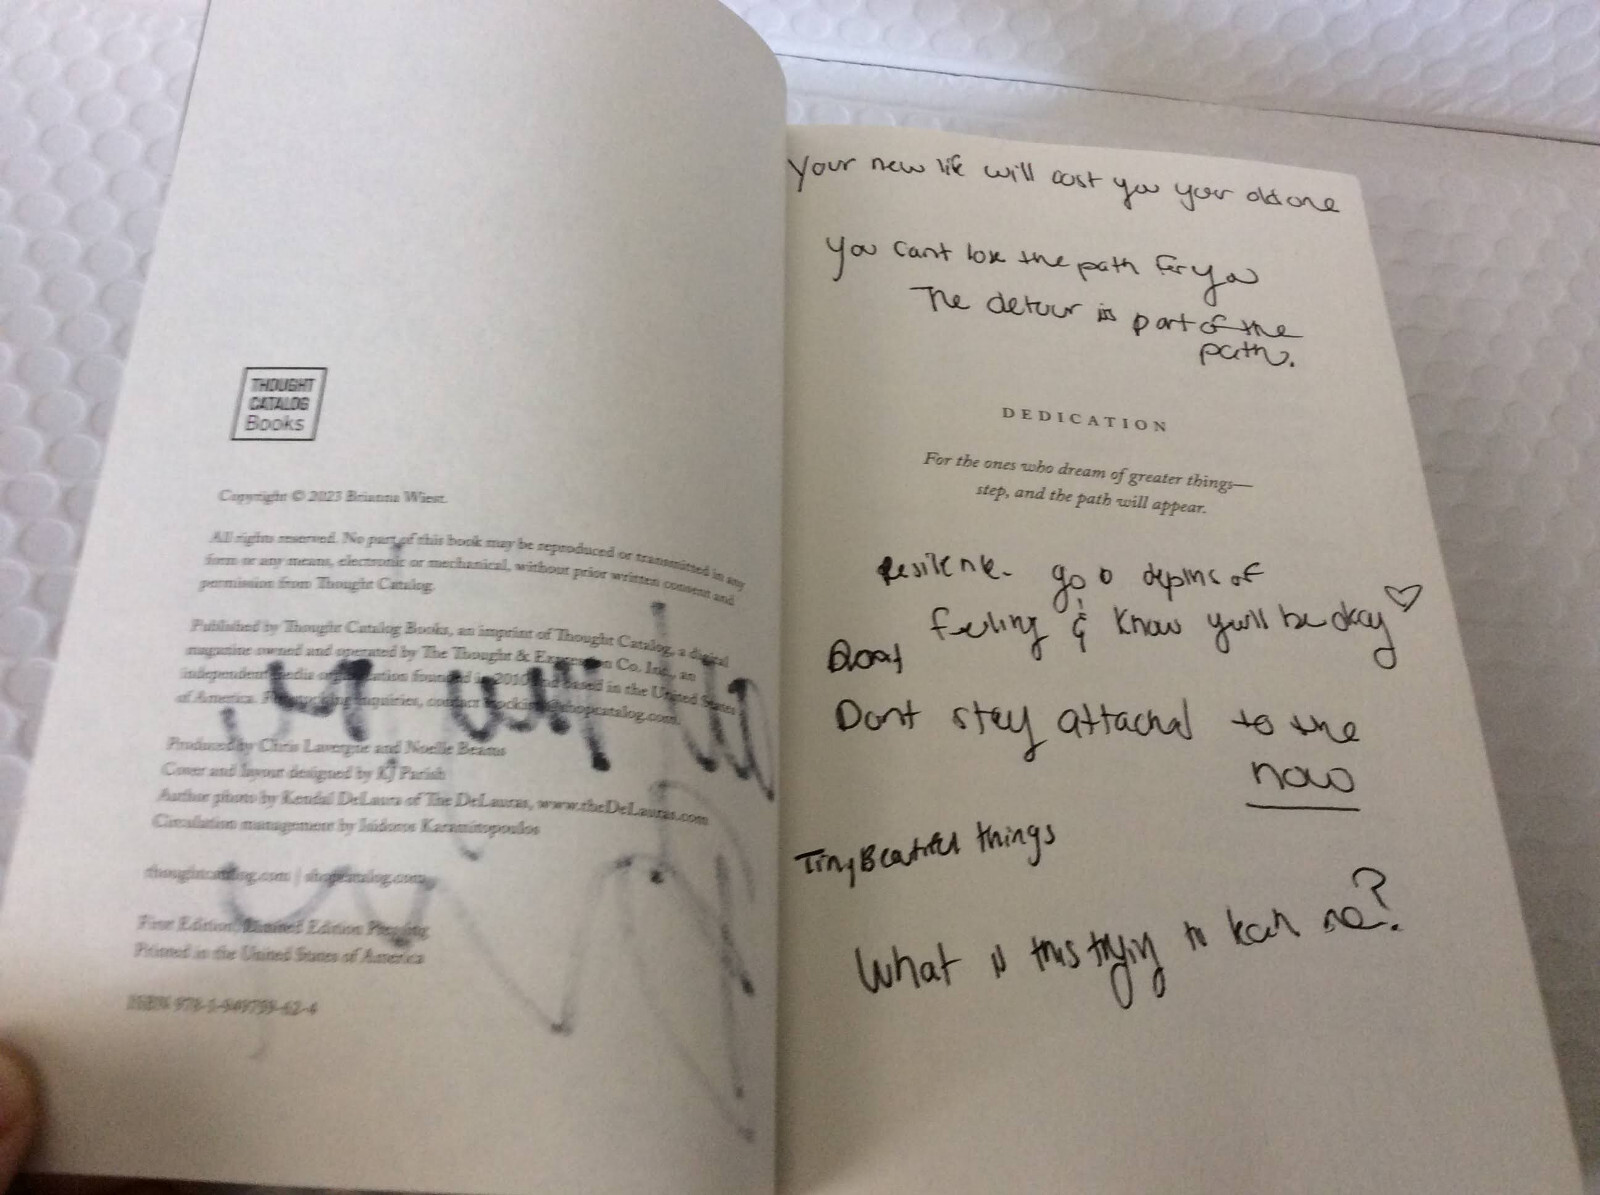 THOUGHT
CATALOG
Books
Copyright © 2023 Brianna Wiest.
All rights reserved. No part of this book may be reproduced or transmitted in any
form or any means, electronic or mechanical, without prior written consent and
permission from Thought Catalog.
Published by Thought Catalog Books, an imprint of Thought Catalog, a digital
magazine owned and operated by The Thought & Expression Co. Inc., an
independent media organization founded in 2010 and based in the United States
of America. For stocking inquiries, contact stockists@shopcatalog.com.
Produced by Chris Lavergne and Noelle Beams
Cover and layout designed by KJ Parish
Author photo by Kendal DeLaura of The DeLauras, www.theDeLauras.com
Circulation management by Isidoros Karamitopoulos
thoughtcatalog.com | shopcatalog.com
First Edition, Limited Edition Pressing
Printed in the United States of America
ISBN 978-1-949759-62-4
Your new life will cost you your old one
You cant lose the path for you
The detour is part of the
path.
DEDICATION
For the ones who dream of greater things—
step, and the path will appear.
go depths of
feeling & know you'll be okay ♡
Dont stay attached to the
now
Tiny Beautiful things
What is this trying to teach me?